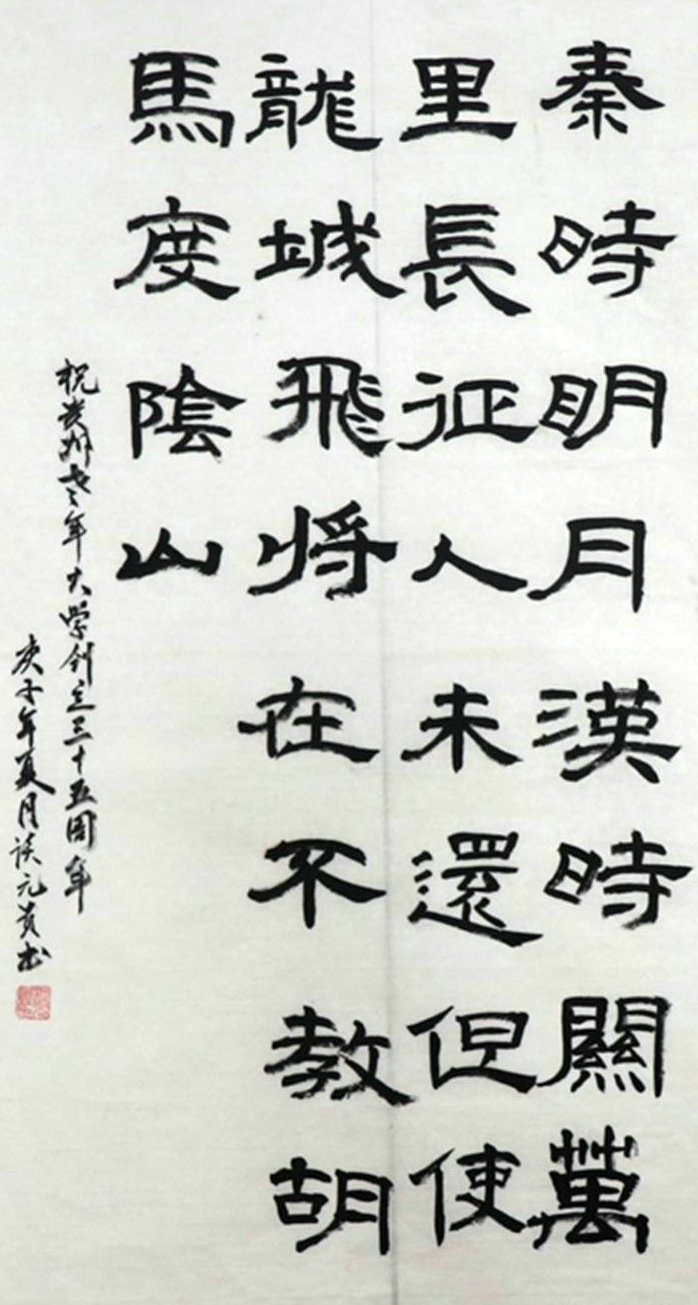 秦時明月漢時關萬
里長征人未還但使
龍城飛将在不教胡
馬度陰山
祝贵州老年大学创立三十五周年
庚子年夏月谈元贵书